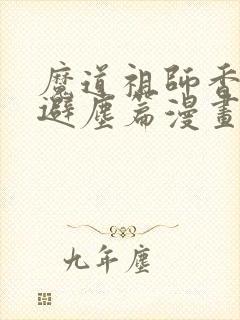 魔道祖師香
避塵篇漫畫
九年塵